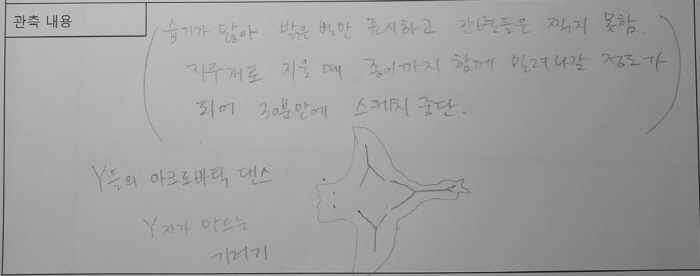 관측 내용
습기가 많아 밝은 별만 표시하고 잔별들은 찍지 못함.
지우개로 지울 때 종이까지 함께 밀려나갈 정도가
되어 30분만에 스케치 중단.
Y들의 아크로바틱 댄스
Y자가 만드는
기러기